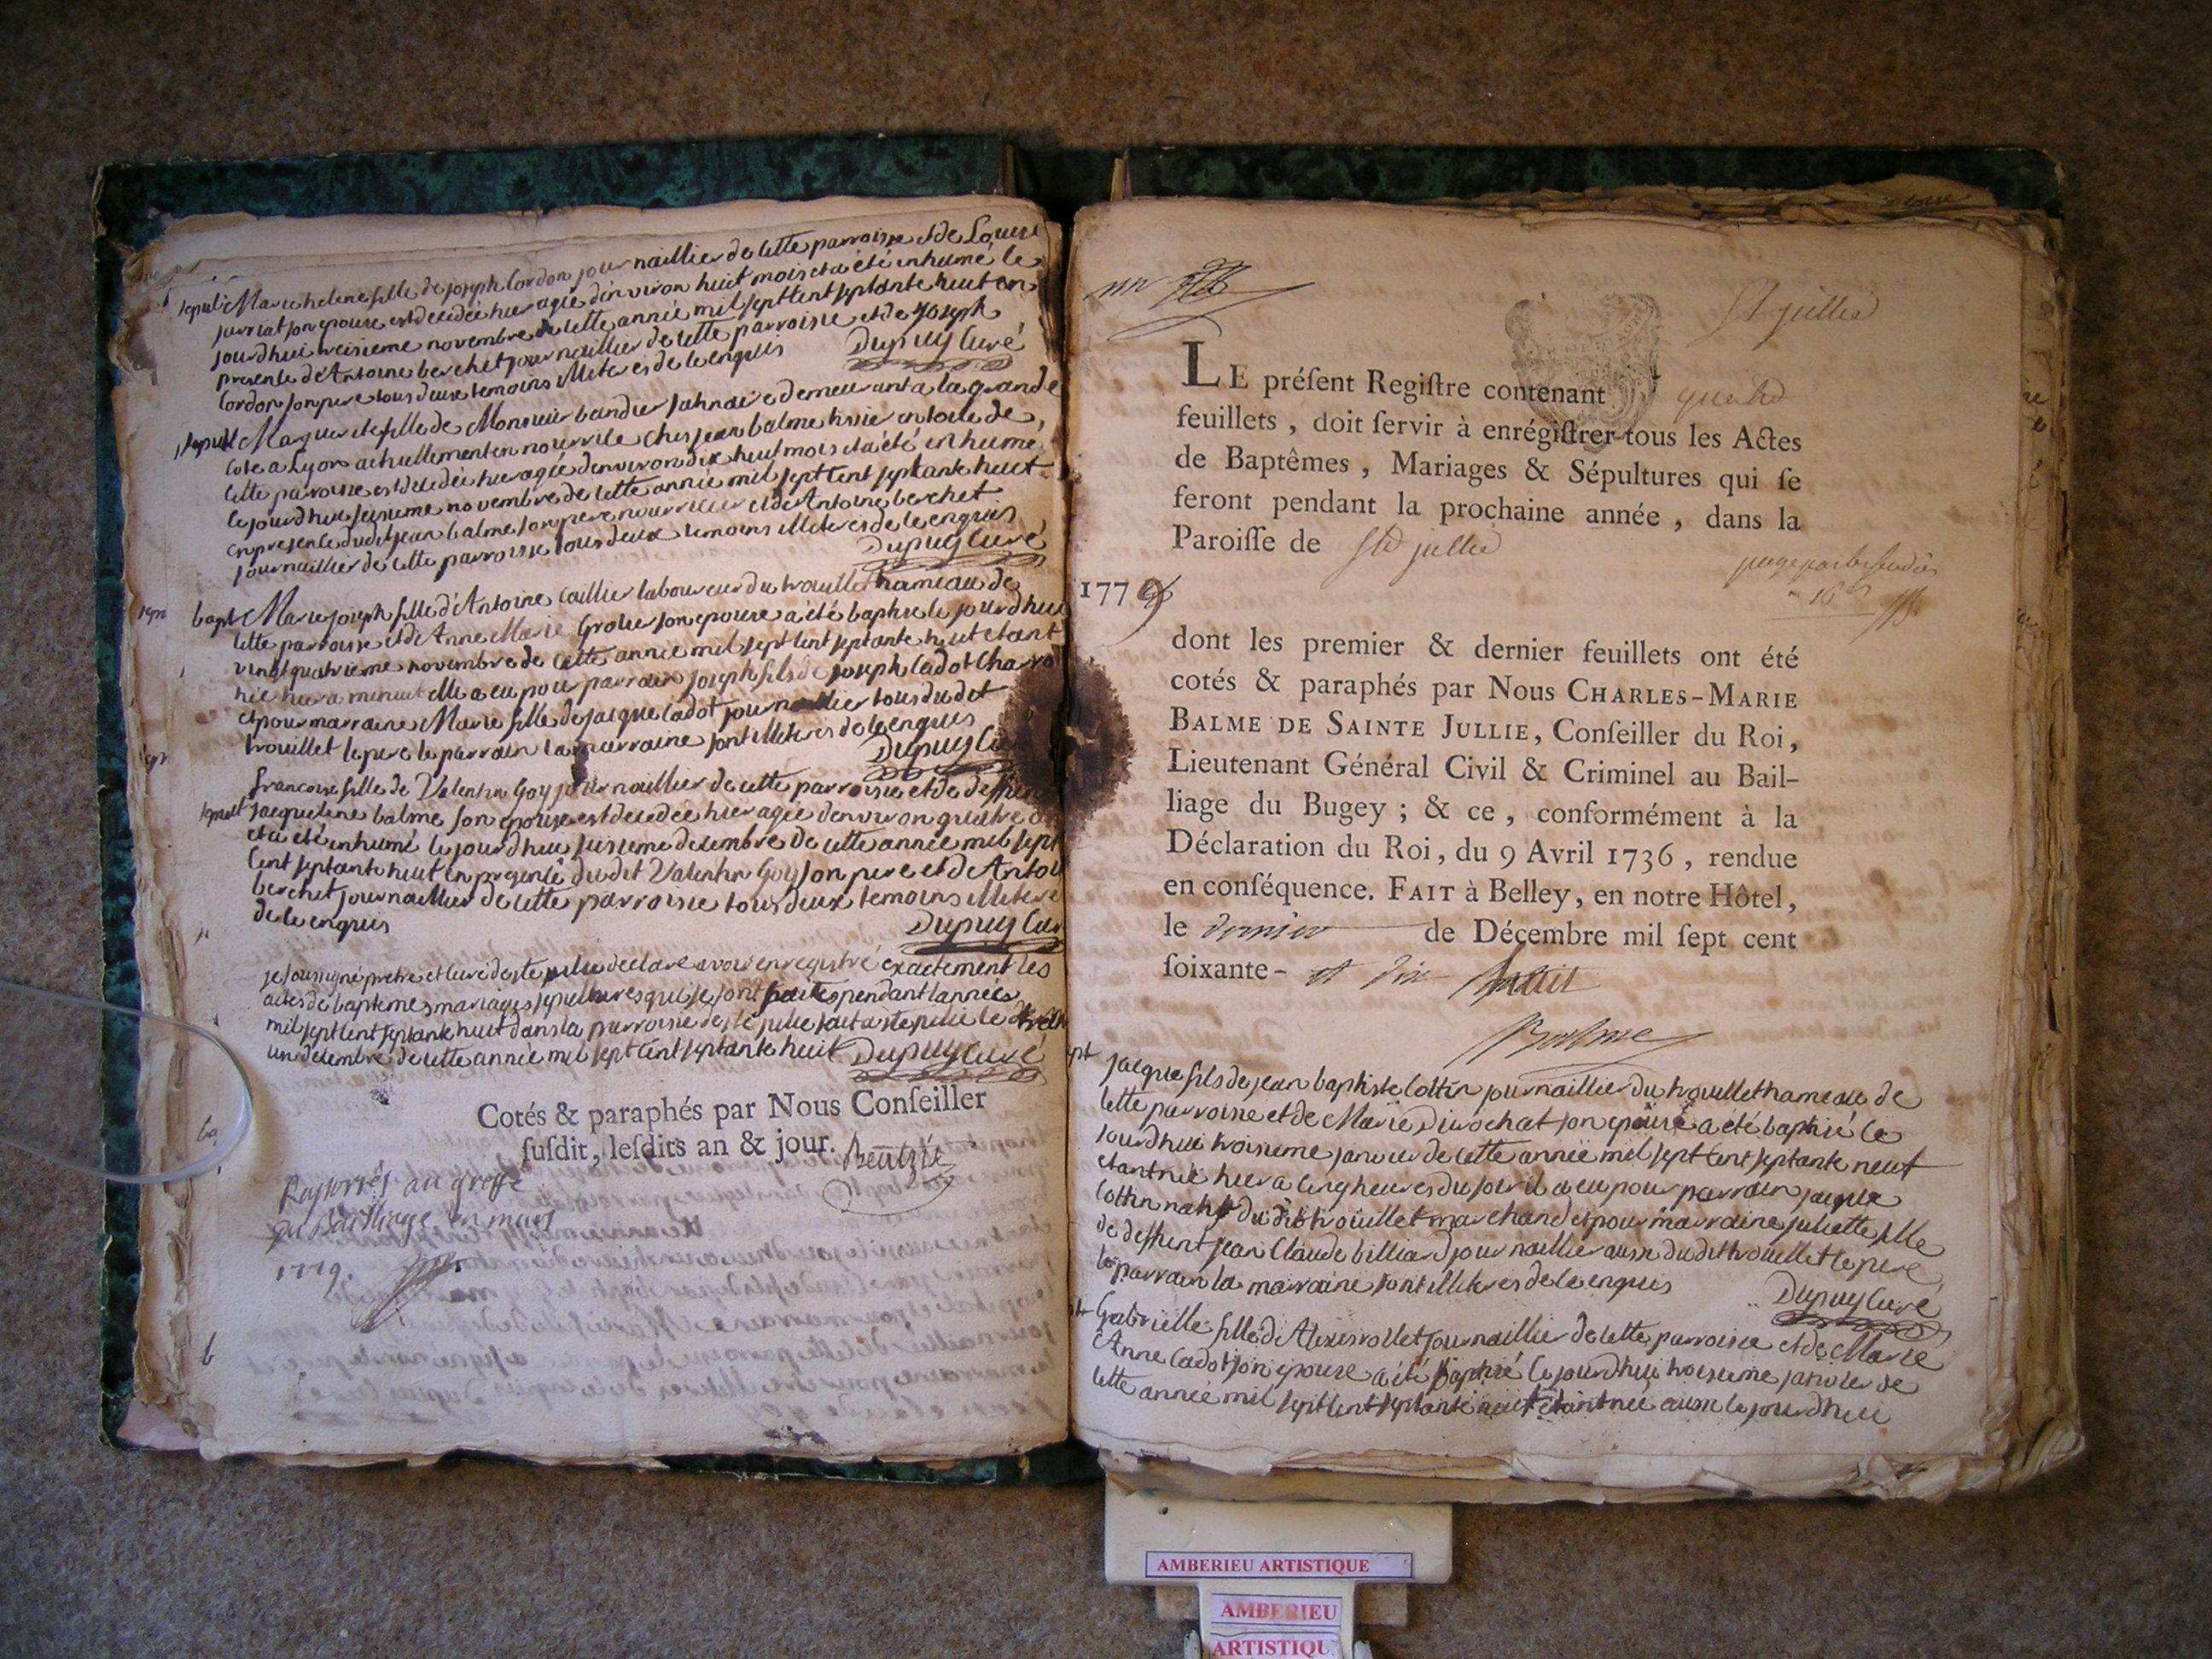 sepult Marie helene fille de joseph Cordon journaillier de cette parroisse et de Louise
jurriat son epouse est decedée hier agée d'environ huit mois et a été inhumé le
jourdhui treisieme novembre de cette année mil sept cent septante huit en
presence d'Antoine berchet journaillier de cette parroisse et de Joseph
Cordon son pere tous deux temoins illiterés de ce enquis
Dupuy Curé
sepult Marguerite fille de Monsieur bandier demeurant a la grande
Cote a Lyon actuellement en nourrice ches jean balme tissier en toile de
cette parroisse est decedée hier agée denviron dix huit mois et a été inhumé
le jourdhui seisieme novembre de cette année mil sept cent septante huit
en presence dudit jean balme son pere nourricier et de Antoine berchet
journaillier de cette parroisse tous deux temoins illiterés de ce enquis
Dupuy Curé
bapt Marie joseph fille d'Antoine Caillier laboureur du trouillet hameau de
cette parroisse et de Anne Marie Grolier son epouse a été baptisé le jourdhui
vingt quatrieme novembre de cette année mil sept cent septante huit etant
née hier a minuit elle a eu pour parrain joseph fils de joseph Cadot
et pour marraine Marie fille de jacque Cadot journaillier tous dudit
trouillet le pere le parrain la marraine sont illiterés de ce enquis
Dupuy
francoise fille de Valentin Goy journaillier de cette parroisse et de
sepult jacqueline balme son epouse est decedée hier agée denviron quatre
et a été inhumé le jourdhui seisieme decembre de cette année mil sept
Cent septante huit en presence dudit Valentin Goy son pere et de
berchet journaillier de cette parroisse tous deux temoins
de ce enquis
Dupuy Cur
je soussigné pretre et curé de ste julie declare avoir enregistré exactement les
actes de baptemes mariages sepultures qui se sont faites pendant l'année
mil sept cent septante huit dans la parroisse de ste julie fait a ste julie le
un decembre de cette année mil sept cent septante huit Dupuy Curé
Cotés & paraphés par Nous Conſeiller
ſuſdit, leſdits an & jour.
au greffe
du Bailliage en mars
1779.
St jullie
LE préſent Regiſtre contenant
feuillets , doit ſervir à enrégiſtrer tous les Actes
de Baptêmes , Mariages & Sépultures qui ſe
feront pendant la prochaine année , dans la
Paroiſſe de Ste jullie
1779
dont les premier & dernier feuillets ont été
cotés & paraphés par Nous CHARLES-MARIE
BALME DE SAINTE JULLIE, Conſeiller du Roi,
Lieutenant Général Civil & Criminel au Bail-
liage du Bugey ; & ce , conformément à la
Déclaration du Roi, du 9 Avril 1736 , rendue
en conſéquence. FAIT à Belley, en notre Hôtel,
le dernier de Décembre mil ſept cent
ſoixante- et dix huit
Balme
jacque fils de jean baptiste Cottin journaillier du trouillet hameau de
cette parroisse et de Marie Durochat son epouse a été baptisé le
jourdhui troisieme janvier de cette année mil sept cent septante neuf
etant née hier a cinq heures du soir il a eu pour parrain jacque
Cottin natif du dit trouillet marchand et pour marraine juliette fille
de deffunt jean Claude billiard journaillier aussi du dit trouillet le pere
le parrain la marraine sont illiterés de ce enquis
Dupuy Curé
Gabrielle fille d'Alexis rollet journaillier de cette parroisse et de Marie
Anne Cadot son epouse a été baptisé le jourdhui troisieme janvier de
cette année mil sept cent septante neuf etant née aussi le jourdhui
AMBERIEU ARTISTIQUE
AMBERIEU
ARTISTIQU